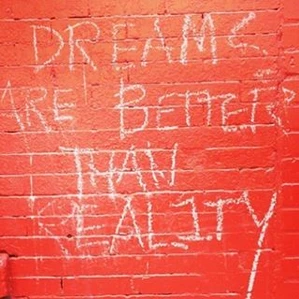 DREAMS
ARE BETTER
THAN
REALITY